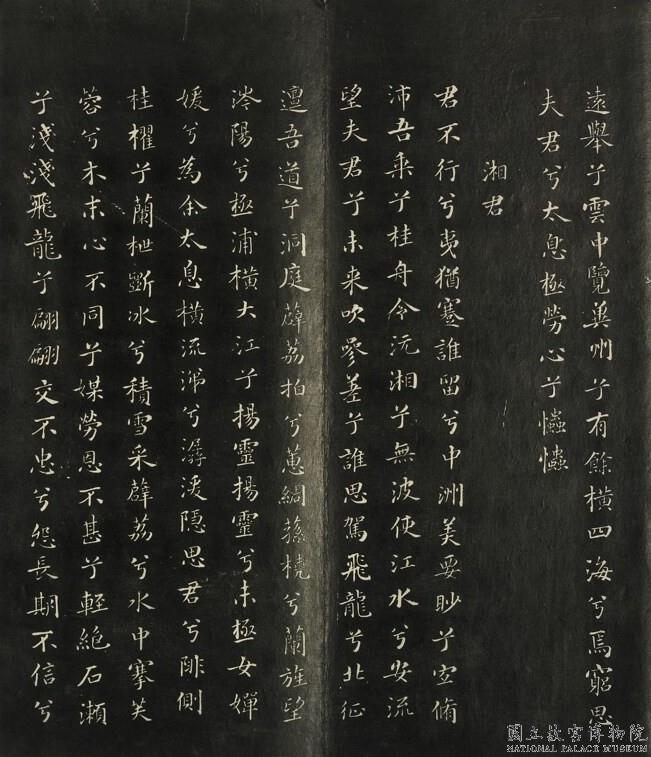 遠舉兮雲中覽冀州兮有餘橫四海兮焉窮思
夫君兮太息極勞心兮忡忡
湘君
君不行兮夷猶蹇誰留兮中洲美要眇兮宜脩
沛吾乘兮桂舟令沅湘兮無波使江水兮安流
望夫君兮未来吹參差兮誰思駕飛龍兮北征
邅吾道兮洞庭薜荔拍兮蕙綢蓀橈兮蘭旌望
涔陽兮極浦橫大江兮揚靈揚靈兮未極女嬋
媛兮為余太息橫流涕兮潺湲隱思君兮陫側
桂櫂兮蘭枻斲冰兮積雪采薜荔兮水中搴芙
蓉兮木末心不同兮媒勞恩不甚兮輕絕石瀨
兮淺淺飛龍兮翩翩交不忠兮怨長期不信兮
國立故宮博物院
NATIONAL PALACE MUSEUM